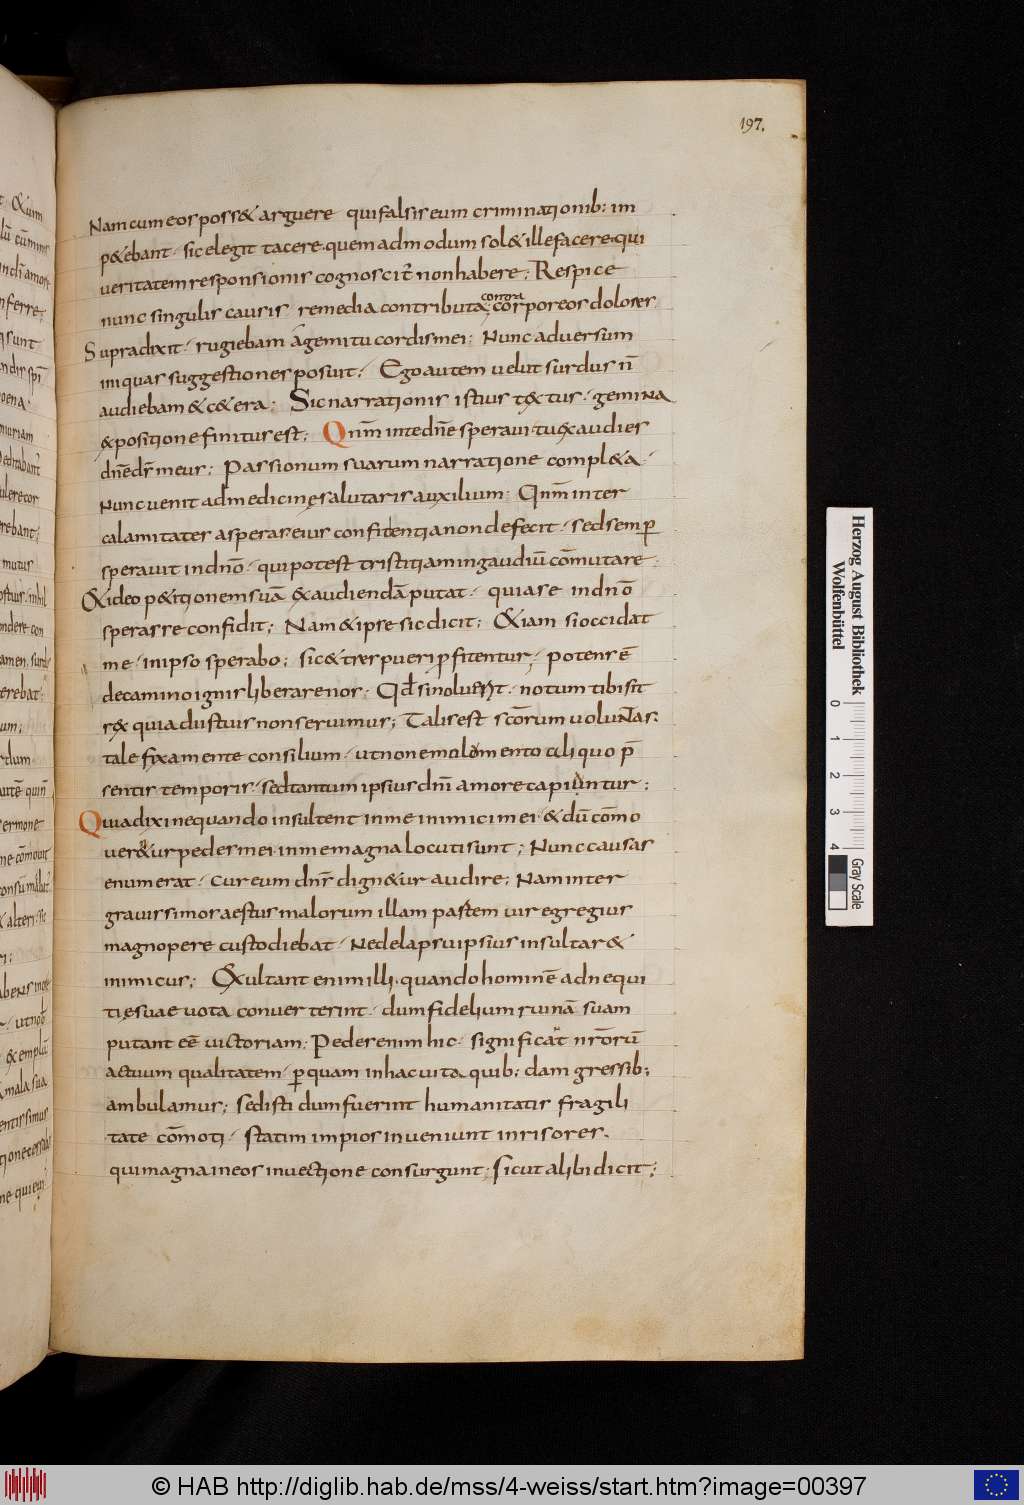 197.
Nam cum eos poss& arguere qui falsis eum criminationib: im
p&ebant· sic elegit tacere· quem ad modum sol& ille facere· qui
ueritatem responsionis cognoscit̄ non habere; Respice
nunc singulis causis remedia contributa; contra corporeos dolores
Supra dixit· rugiebam a gemitu cordis mei; Nunc aduersum
iniquas suggestiones posuit· Ego autem uelut surdus n̄
audiebam & c&era; Sic narrationis istius textus· gemina
expositione finitus est; Qnm̄ in te dn̄e speraui· tu exaudies
dn̄e ds̄ meus; Passionum suarum narratione compl&a·
Nunc uenit ad medicinę salutaris auxilium; Qnm̄ inter
calamitates asperas· eius confitentia non defecit· sed semp̄
sperauit in dn̄o· qui potest tristitiam in gaudiū cōmutare·
Et ideo p&itionem suā exaudiendā putat· quia se in dn̄o
sperasse confidit; Nam & ipse sic dicit; Etiam si occidat
me· in ipso sperabo; sic & tres pueri p̄fitentur· potens ē
de camino ignis liberare nos· Qd̄ si noluerit· notum tibi sit
rex quia diis tuis non seruimus; Talis est scōrum uoluntas·
tale fixa mente consilium· ut non emolomento aliquo p̄
sentis temporis· sed tantum ipsius dn̄i amore capiuntur;
Quia dixi nequando insultent in me inimici mei· & dū cōmo
uer&ur pedes mei· in me magna locuti sunt; Nunc causas
enumerat· cur eum dn̄s dign&ur audire; Nam inter
grauissimos aestus malorum illam partem uir egregius
magnopere custodiebat· Ne de lapsu ipsius insultar&
inimicus; Exultant enim illi· quando hominē ad nequi
tię suae uota conuerterint· dum fidelium ruinā suam
putant eē uictoriam; Pedes enim hic· significat nr̄orū
actuum qualitatem· p̄ quam in hac uita quib: dam gressib;
ambulamus; sed isti dum fuerint humanitatis fragili
tate cōmoti· statim impios inueniunt inrisores·
qui magna in eos inuectione consurgunt; sicut alibi dicit;
Herzog August Bibliothek
Wolfenbüttel
0 1 2 3 4 Gray Scale
© HAB http://diglib.hab.de/mss/4-weiss/start.htm?image=00397